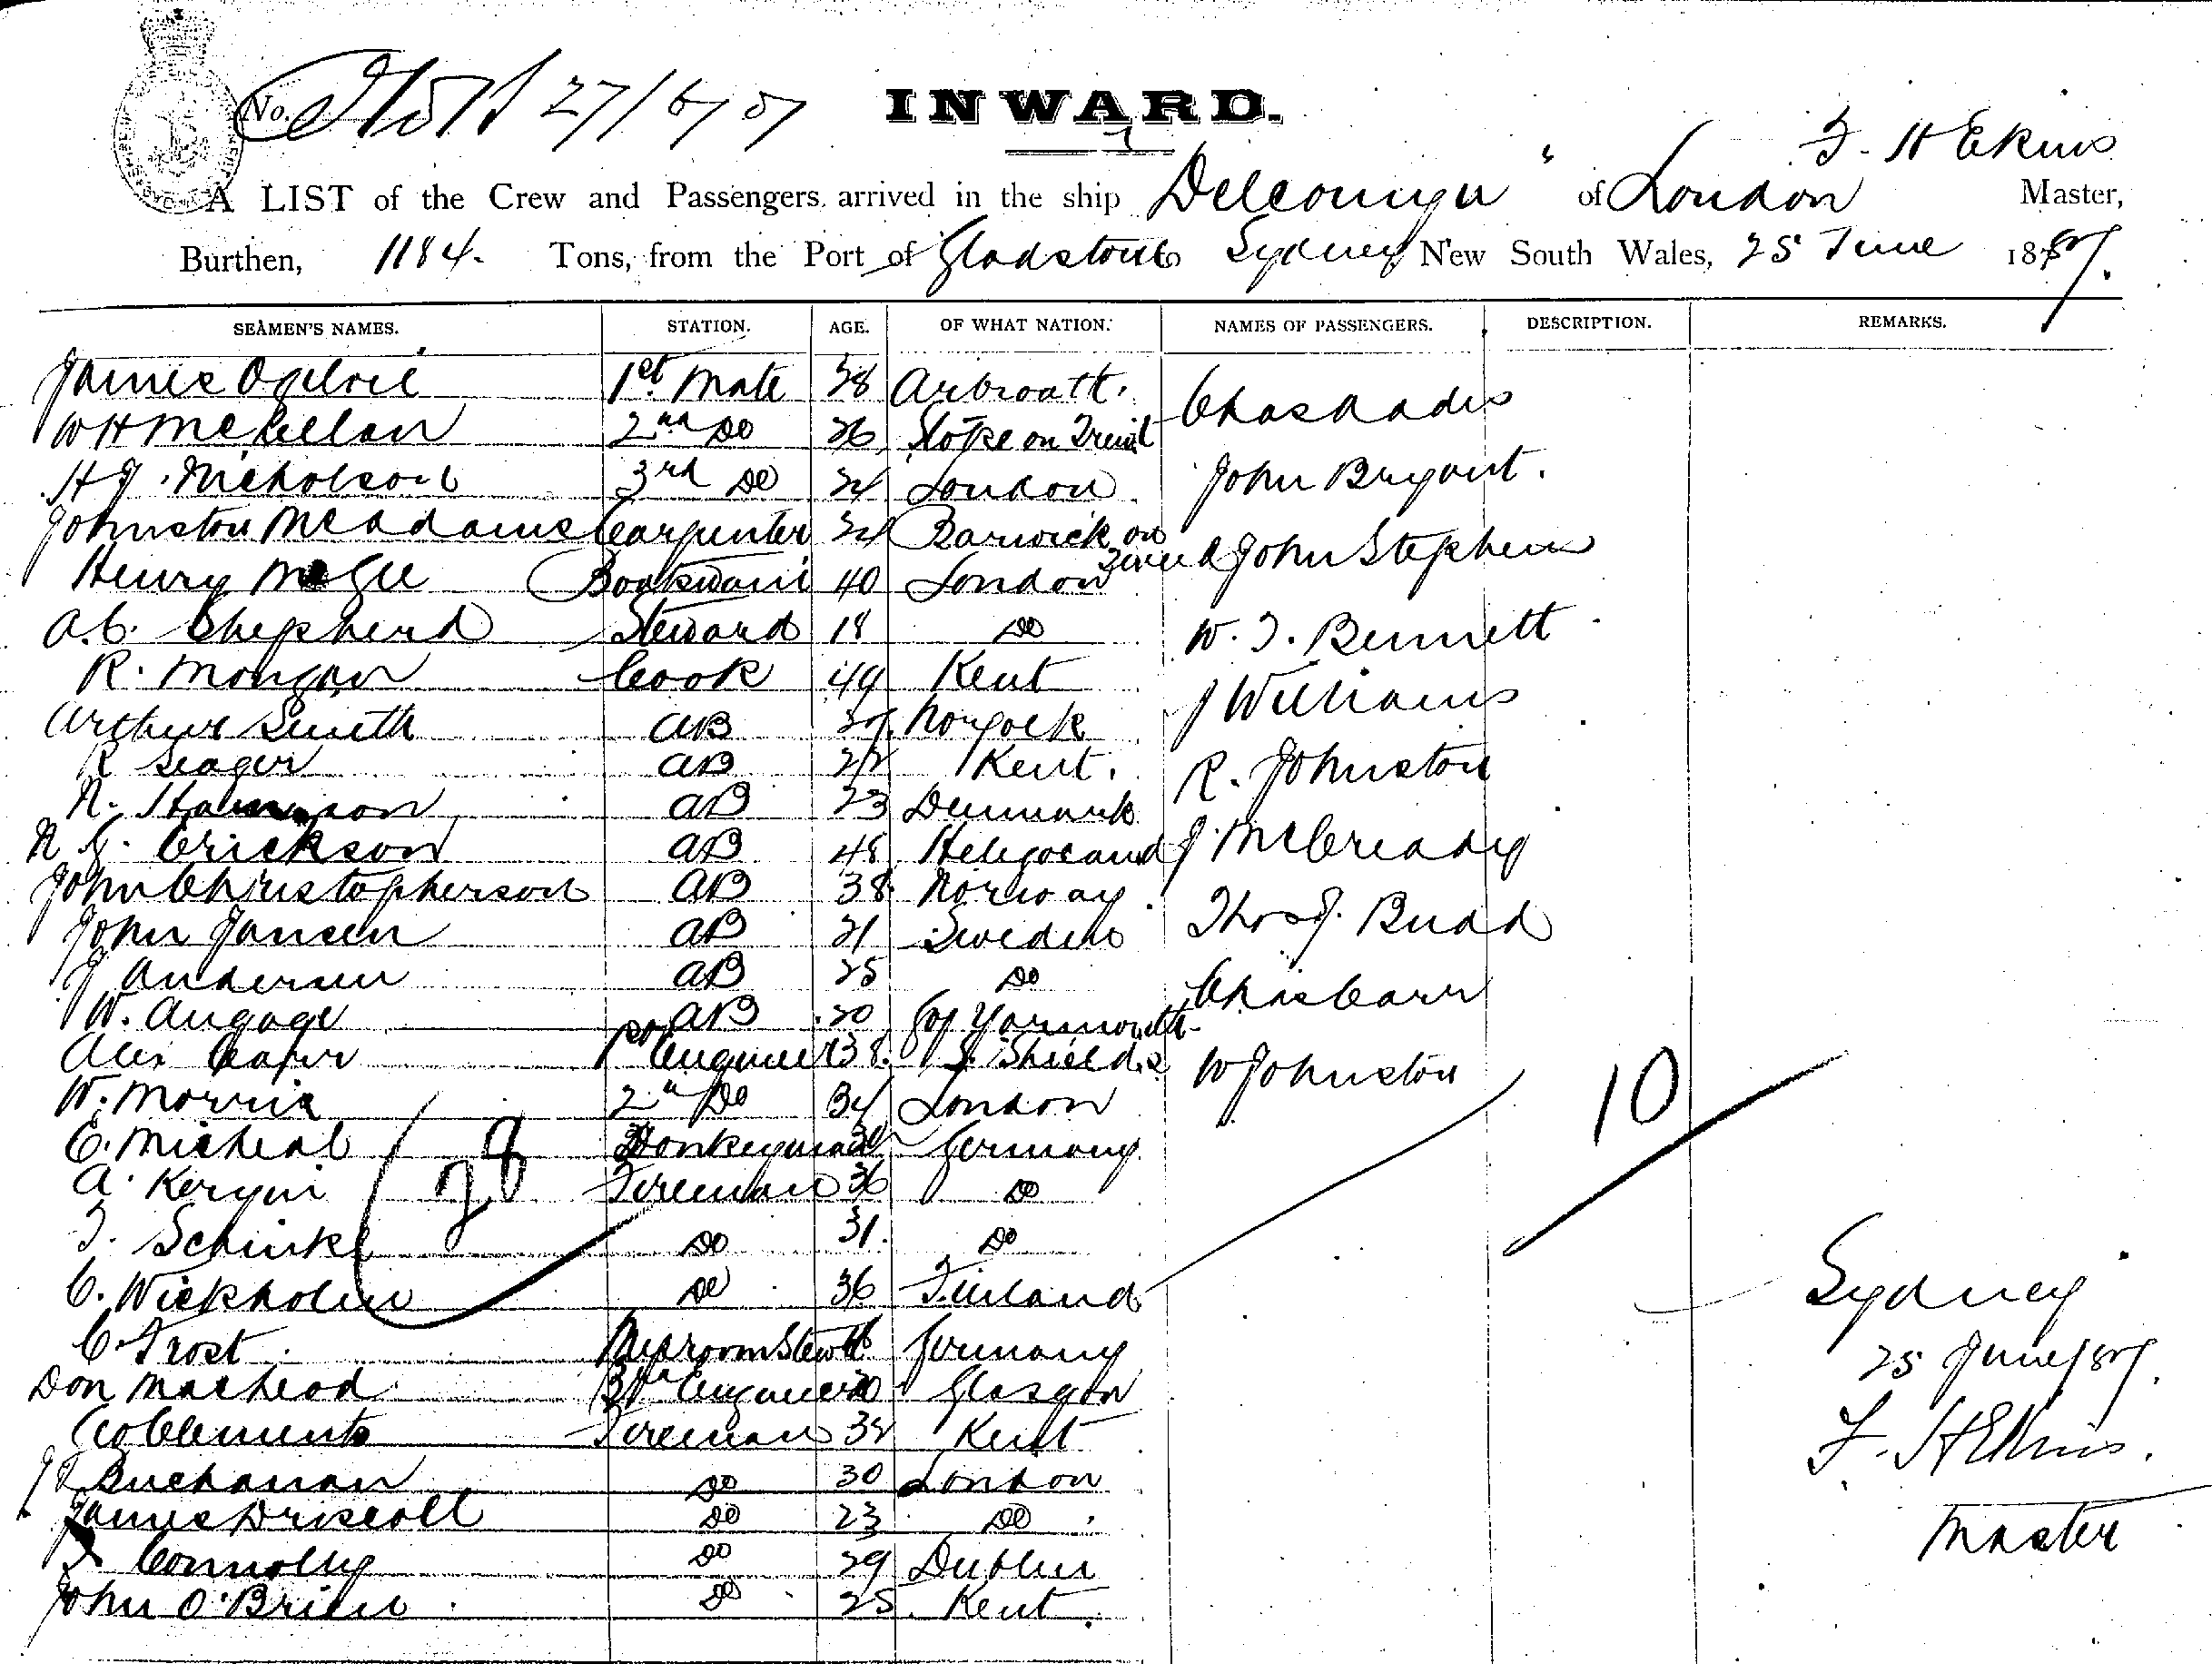 No. 27/6/87
INWARD.
F. H Ekins
A LIST of the Crew and Passengers arrived in the ship "Delcomyn" of London Master,
Burthen, 1184. Tons, from the Port of Gladstone Sydney New South Wales, 25 June 1887.
SEAMEN'S NAMES. STATION. AGE. OF WHAT NATION. NAMES OF PASSENGERS. DESCRIPTION. REMARKS.
James Ogilvie 1st Mate 38 Arbroath.
Chas
WH McLellan 2nd Do 26 Stoke on Trent
H J. Nicholson 3rd Do 24 London John Bryant.
Johnston McAdams Carpenter 34 Barwick on Tweed
John Stephens
Henry McGee Boatswain 40 London
A.C. Shepherd Steward 18 Do W. T. Bennett
R. Morgan Cook 49 Kent
J Williams
Arthur Smith AB Norfolk
R Seager AB 22 Kent. R. Johnston
N. AB 23 Denmark
N G. Erickson AB 48 Heligoland J McCready
John Christopherson AB 38 Norway
John Jansen AB 21 Sweden Thos J. Budd
J Andersen AB 25 Do
Chas Carr
W. Augage AB 20 Gt Yarmouth
Alex Carr 1st Engineer 38. S. Shields
W Johnston
10
W. Morris 2nd Do 34 London
E. Micheal Donkeyman Germany
28
A. Kergui Fireman 36 Do
F. Schinkel Do 31. Do
C. Wickholm Do 36 Finland
Sydney
C. Frost Messroom Stewd Germany
25 June/87.
Don MacLeod 3rd Engineer 30 Glasgow
Geo Clements Fireman 32 Kent
F. H Ekins.
J Buchanan Do 30 London
James Driscoll Do 23 Do
Master
Connolly Do 29 Dublin
John O'Brien Do 25 Kent.